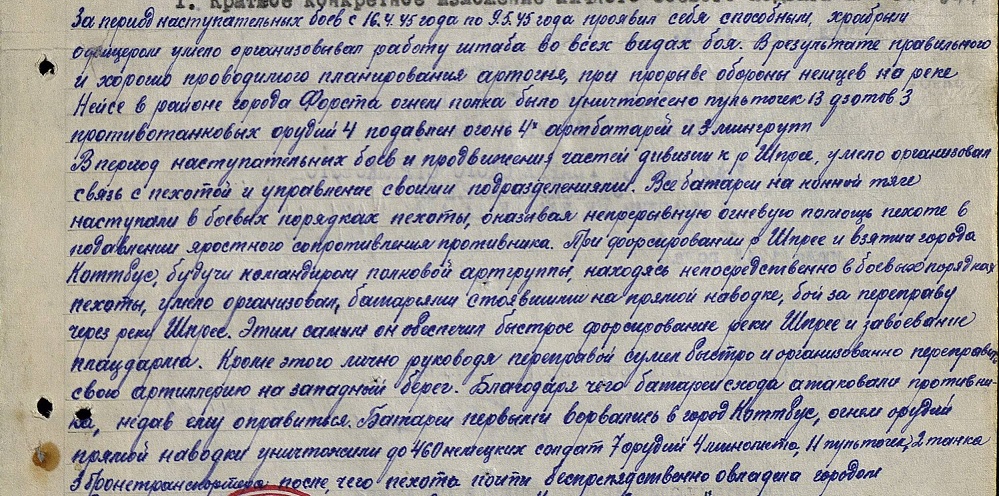 1. Краткое конкретное изложение личного боевого
За период наступательных боев с 16.4.45 года по 9.5.45 года проявил себя способным, храбрым
офицером умело организовывал работу штаба во всех видах боя. В результате правильного
и хорошо проводимого планирования артогня, при прорыве обороны немцев на реке
Нейсе в районе города Форста огнем полка было уничтожено пульточек 13 дзотов 3
противотанковых орудий 4 подавлен огонь 4х артбатарей и 3 мингрупп
В период наступательных боев и продвижения частей дивизии к р Шпрее, умело организовал
связь с пехотой и управление своими подразделениями. Все батареи на конной тяге
наступали в боевых порядках пехоты, оказывая непрерывную огневую помощь пехоте в
подавлении яростного сопротивления противника. При форсировании р Шпрее и взятии города
Коттбус, будучи командиром полковой артгруппы, находясь непосредственно в боевых порядках
пехоты, умело организовал, батареями стоявшими на прямой наводке, бой за переправу
через реку Шпрее. Этим самым он обеспечил быстрое форсирование реки Шпрее и завоевание
плацдарма. Кроме этого лично руководя переправой сумел быстро и организованно переправить
свою артиллерию на западный берег. Благодаря чего батареи схода атаковали противни-
ка, недав ему оправиться. Батареи первыми ворвались в город Коттбус, огнем орудий
прямой наводки уничтожили до 460 немецких солдат 7 орудий 4 миномета, 11 пульточек, 2 танка
3 бронетранспортера после, чего пехота почти беспрепядственно овладела городом